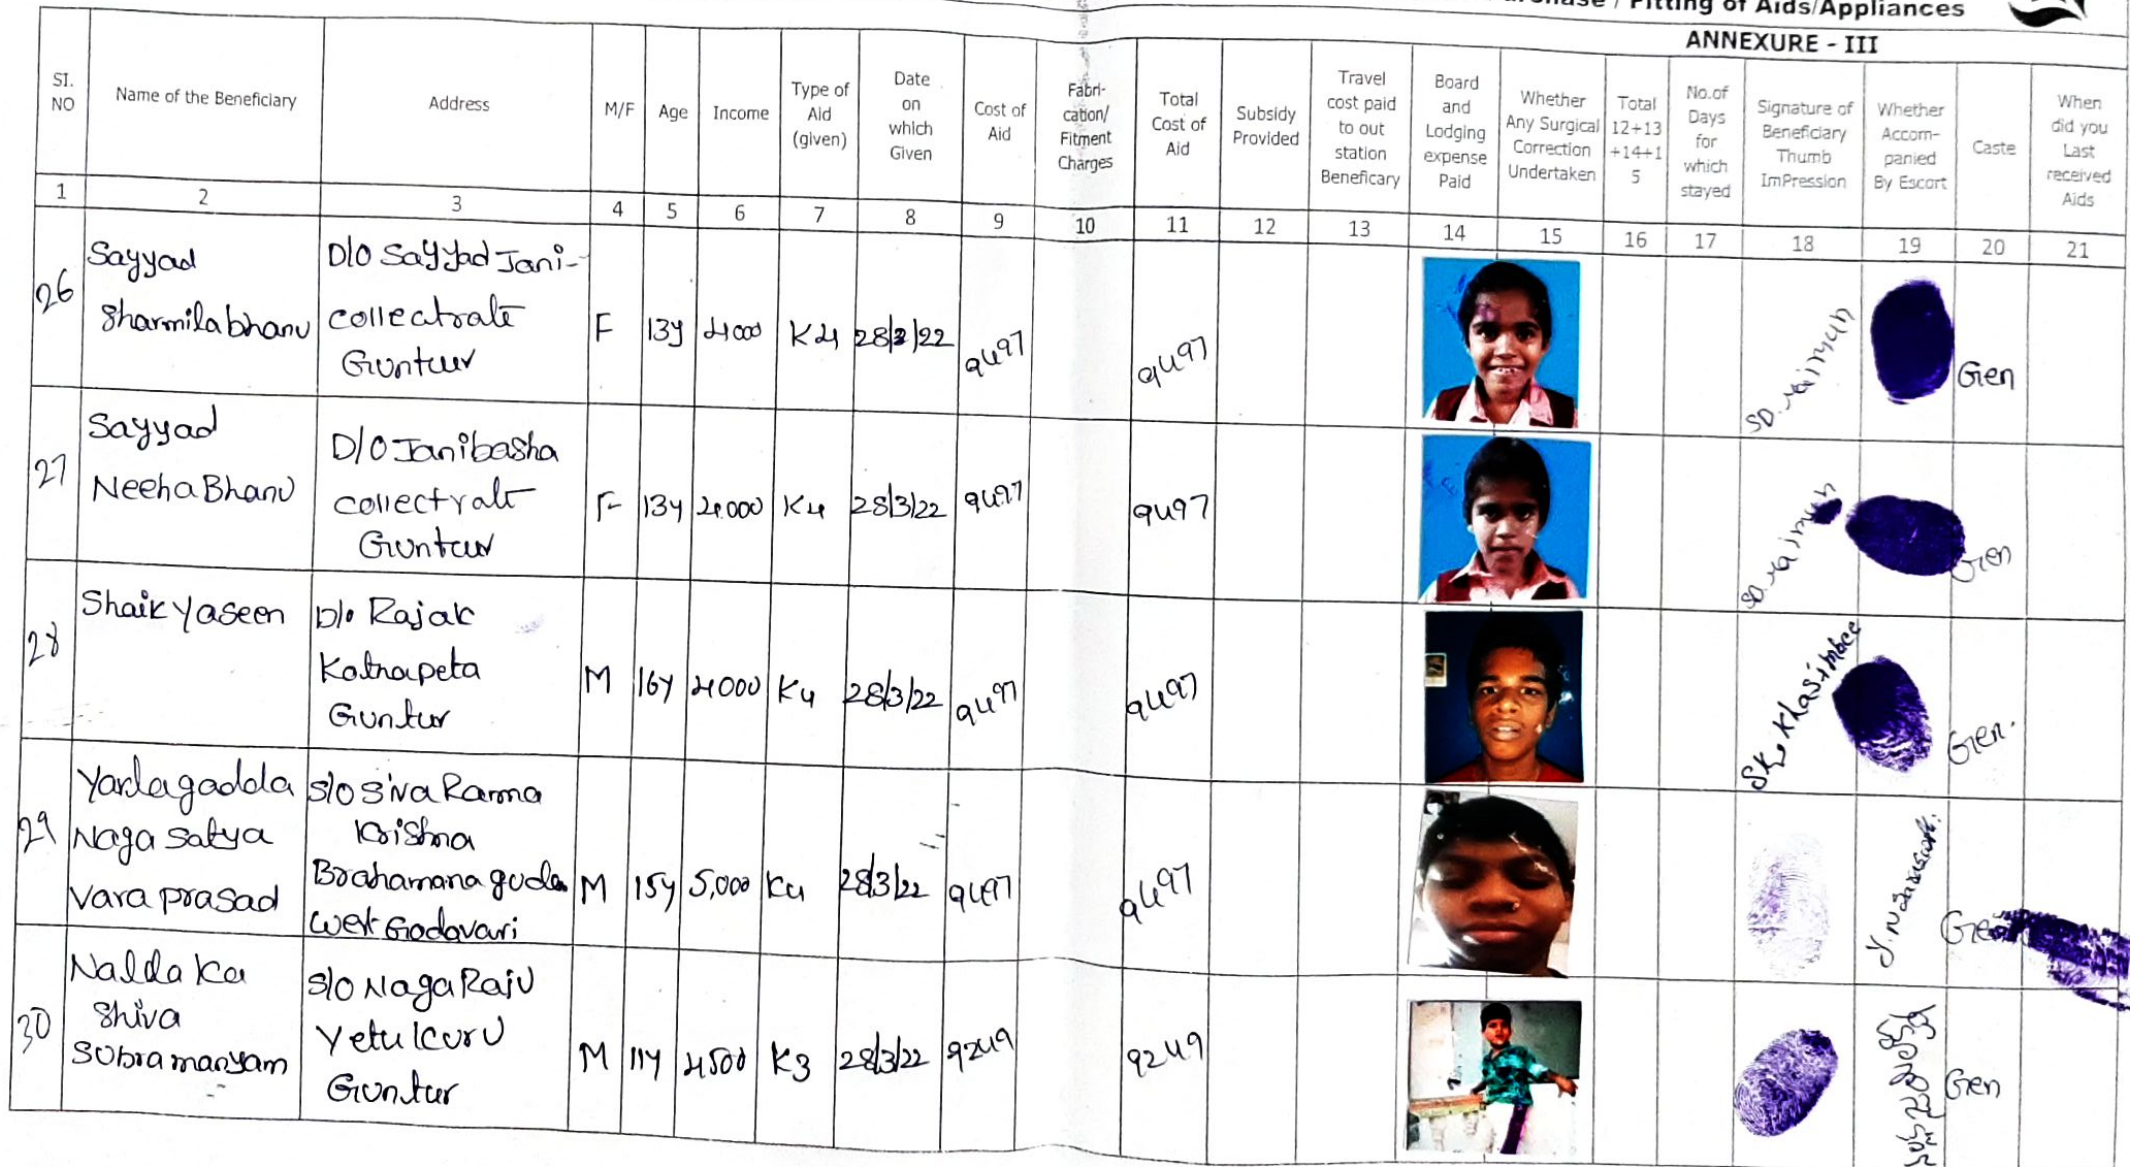 Fitting of Aids/Appliances
ANNEXURE - III
SI. NO
Name of the Beneficiary
Address
M/F
Age
Income
Type of Aid (given)
Date on which Given
Cost of Aid
Fabri-cation/ Fitment Charges
Total Cost of Aid
Subsidy Provided
Travel cost paid to out station Beneficary
Board and Lodging expense Paid
Whether Any Surgical Correction Undertaken
Total 12+13 +14+1 5
No.of Days for which stayed
Signature of Beneficiary Thumb ImPression
Whether Accom-panied By Escort
Caste
When did you Last received Aids
1 2 3 4 5 6 7 8 9 10 11 12 13 14 15 16 17 18 19 20 21
26
Sayyad
Sharmila bhanu
D/O Sayyad Jani-
collectrate
Guntur
F 13y 4000 K4 28/3/22 9497 9497
Gen
27
Sayyad
Neeha Bhanu
D/O Janibasha
collectrate
Guntur
F 13y 4000 K4 28/3/22 9497 9497
Gen
28
Shaik Yaseen
D/o Rajak
Guntur
M 16y 4000 K4 28/3/22 9497 9497
Sk. Khasimbee
Gen.
29
Yarlagadda
Naga Satya
Vara prasad
S/O Siva Rama
Krishna
Brahamana guda
West Godavari
M 15y 5,000 K4 28/3/22 9497 9497
Gen
30
Shiva
Subramanyam
S/O Naga Raju
Yetukuru
Guntur
M 11y 4500 K3 28/3/22 9249 9249
Gen